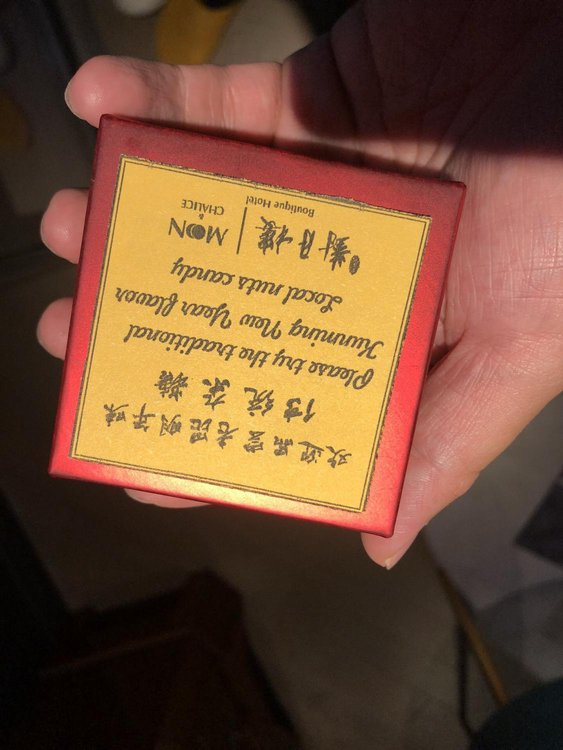 欢迎品尝老昆明年味
传统杂糖
Please try the traditional
Kunming New Year flavor
Local nuts candy
對月樓
MOON
& CHALICE
Boutique Hotel